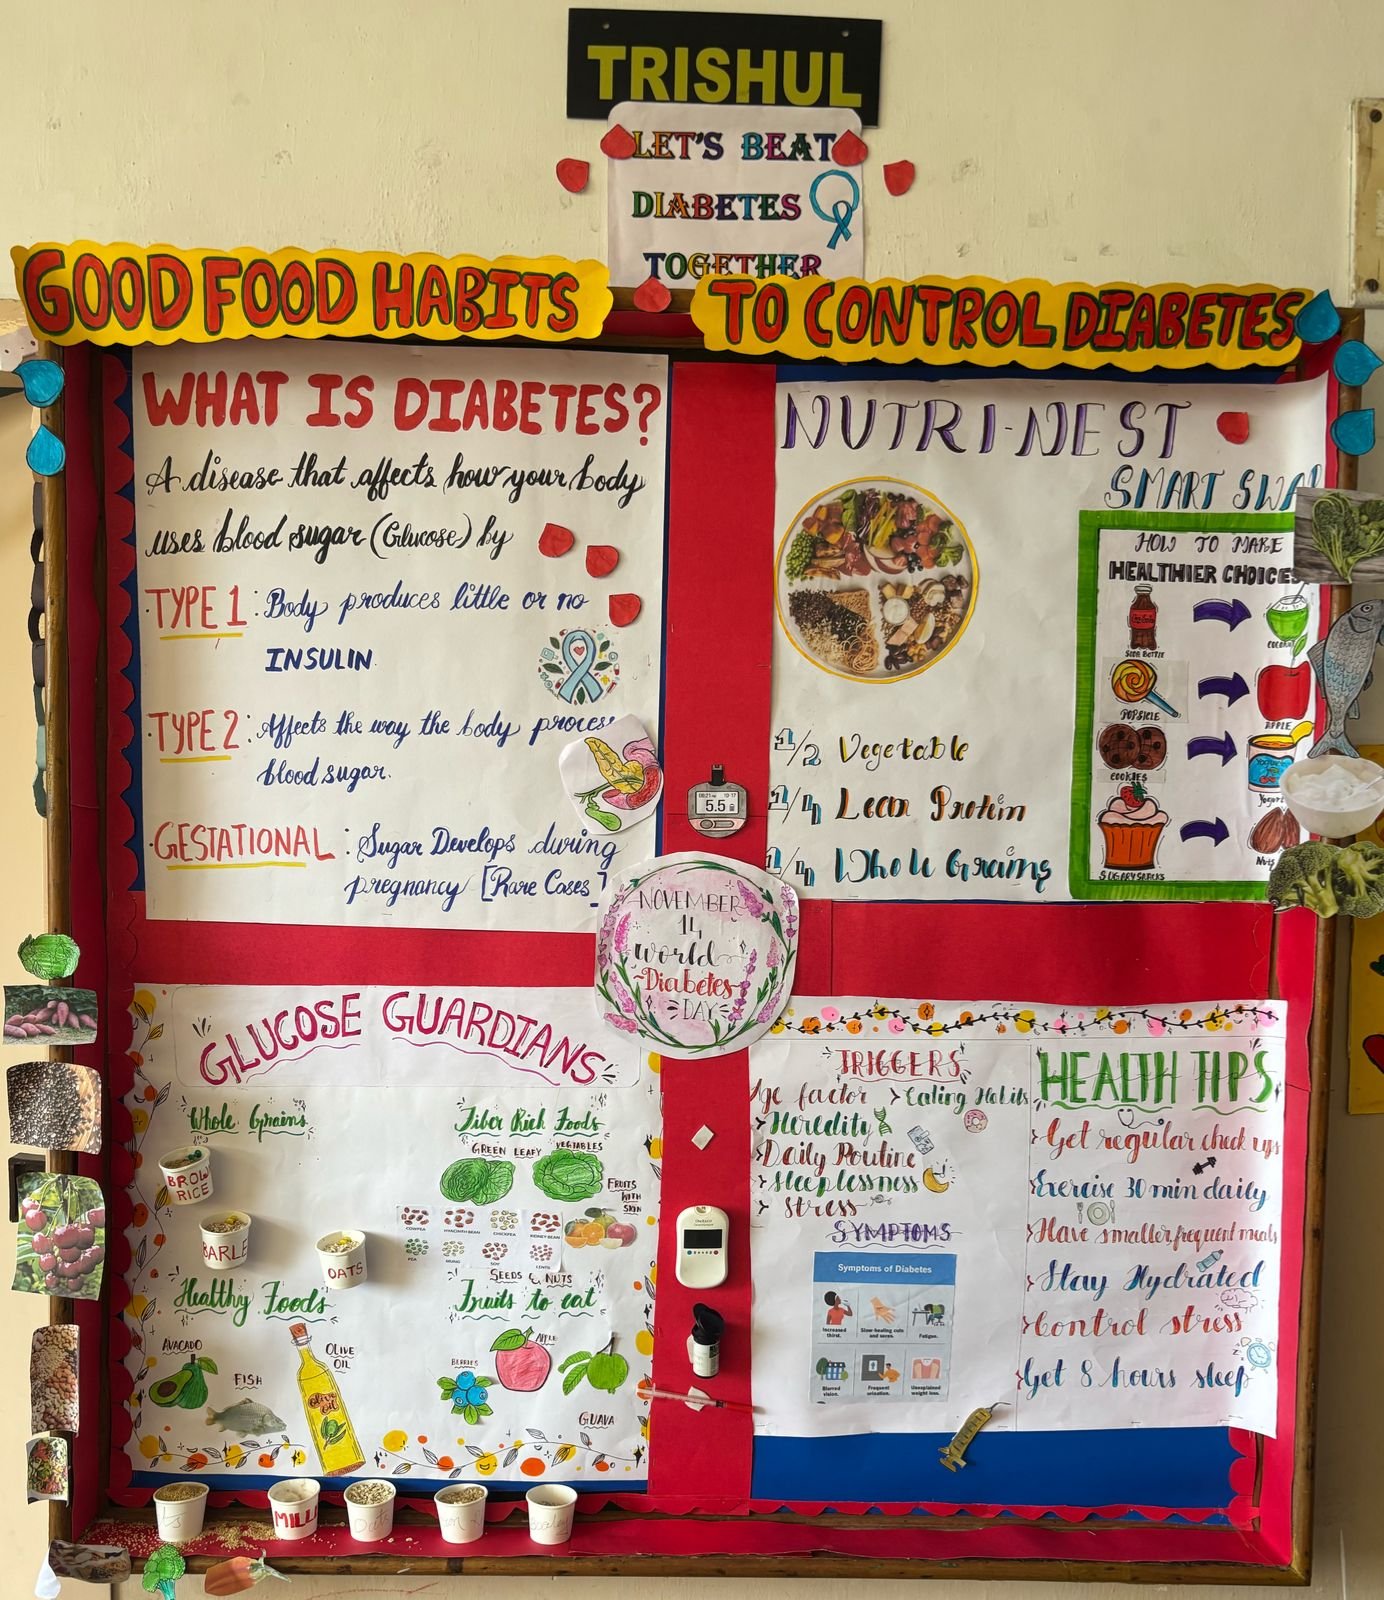 TRISHUL
LET'S BEAT
DIABETES
TOGETHER
GOOD FOOD HABITS
TO CONTROL DIABETES
WHAT IS DIABETES?
A disease that affects how your body
uses blood sugar (Glucose) by
TYPE 1 : Body produces little or no
INSULIN
TYPE 2 : Affects the way the body process
blood sugar.
GESTATIONAL : Sugar Develops during
pregnancy [Rare Cases]
NUTRI-NEST
SMART SWAP
HOW TO MAKE
HEALTHIER CHOICES
SODA BOTTLE
POPSICLE
APPLE
COOKIES
Yogurt
SUGARY SNACKS
Nuts
1/2 Vegetable
1/4 Lean Protein
1/4 Whole Grains
5.5
NOVEMBER
14
World
Diabetes
DAY
GLUCOSE GUARDIANS
Whole Grains
BROWN
RICE
BARLE
OATS
Fiber Rich Foods
GREEN LEAFY VEGETABLES
FRUITS
WITH
SKIN
COWPEA
HYACINTH BEAN
CHICKPEA
KIDNEY BEAN
PEA
MUNG
SOY
LENTIL
SEEDS & NUTS
Healthy Foods
AVACADO
FISH
OLIVE
OIL
OLIVE
OIL
Fruits to eat
BERRIES
APPLE
GUAVA
MILL
Oats
Barley
TRIGGERS
Age factor
Eating Habits
Heredity
Daily Routine
Sleeplessness
Stress
SYMPTOMS
Symptoms of Diabetes
Increased
thirst.
Slow-healing cuts
and sores.
Fatigue.
Blurred
vision.
Frequent
urination.
Unexplained
weight loss.
HEALTH TIPS
Get regular check ups
Exercise 30 min daily
Have smaller, frequent meals
Stay Hydrated
Control stress
Get 8 hours sleep